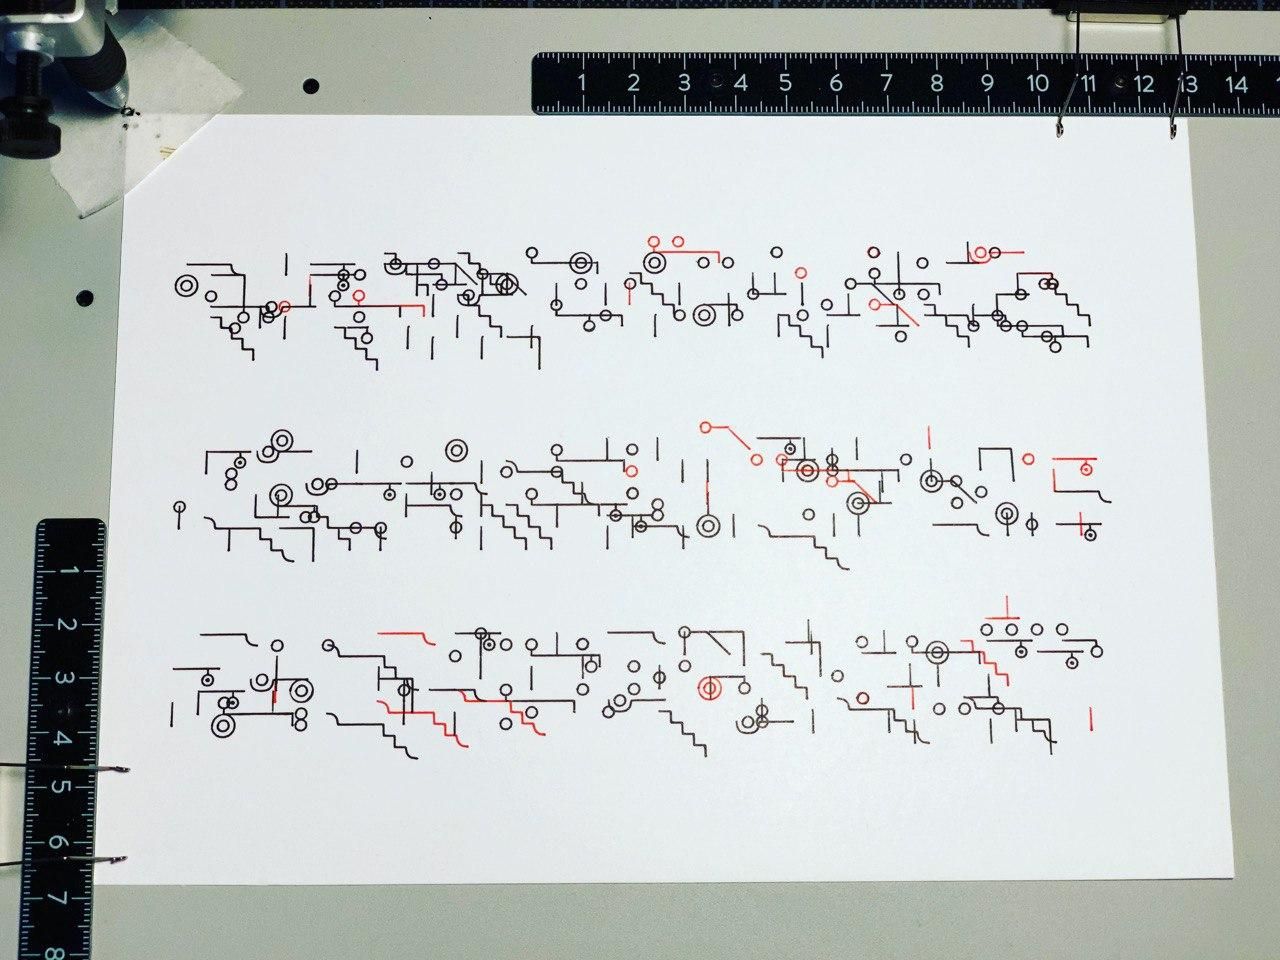 1 2 3 4 5 6 7 8 9 10 11 12 13 14
1
2
3
4
5
6
7
8